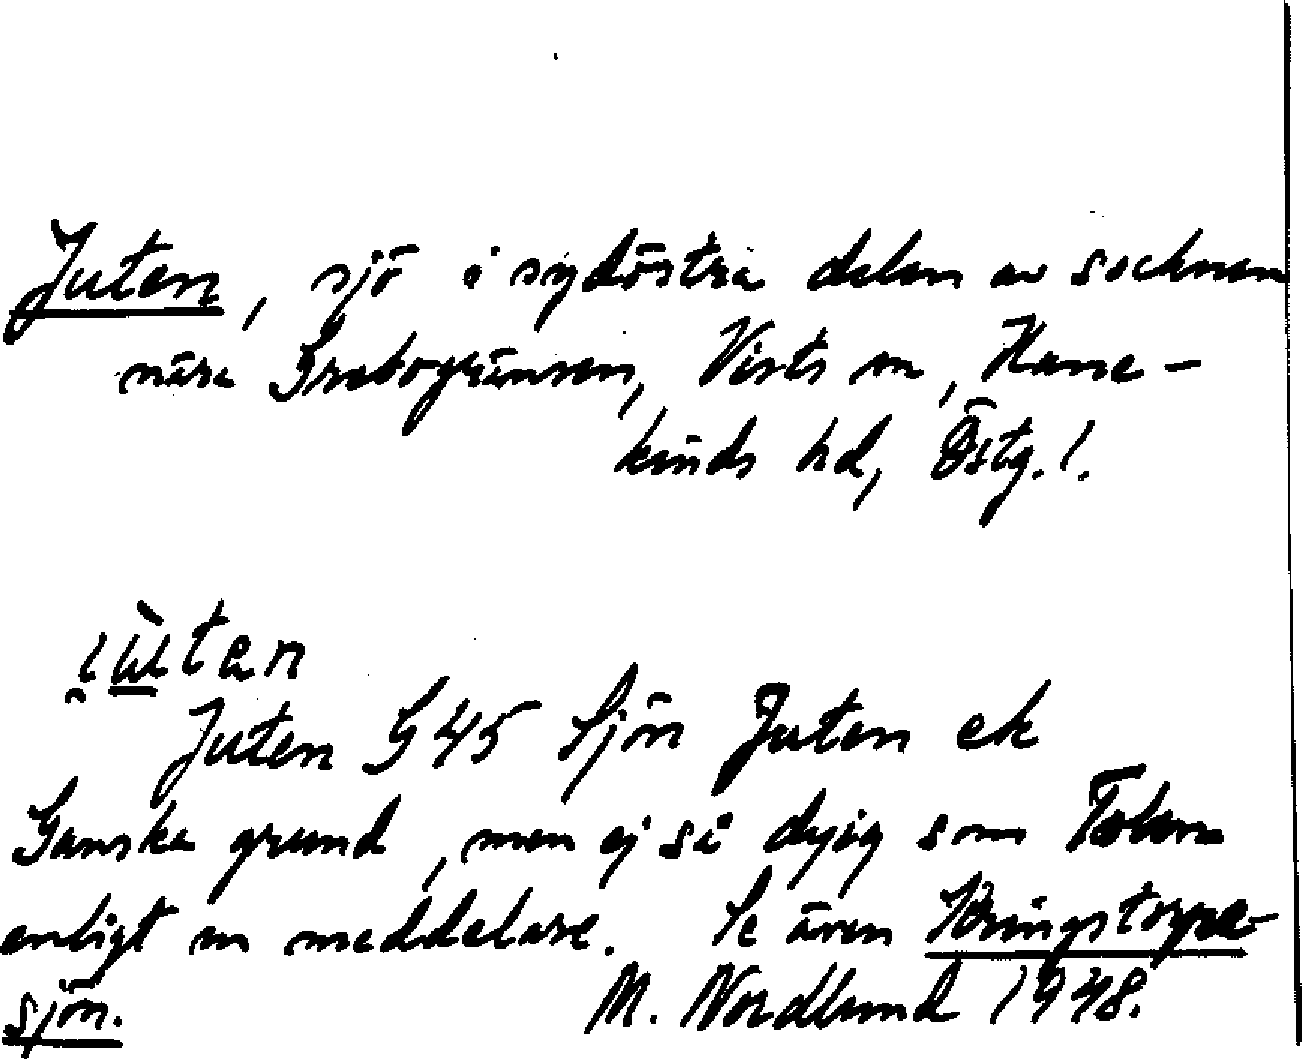 Juten, sjö i sydöstra delen av socknen
nära Grebogränsen, Vists sn, Hane-
kinds hd, Östg. l.
i̯ù̱tan
Juten G 45 Sjön Juten ek
Ganska grund, men ej så dyig som
enligt en meddelare. Se även Bringstorpa-
sjön. M. Nordlund 1948.